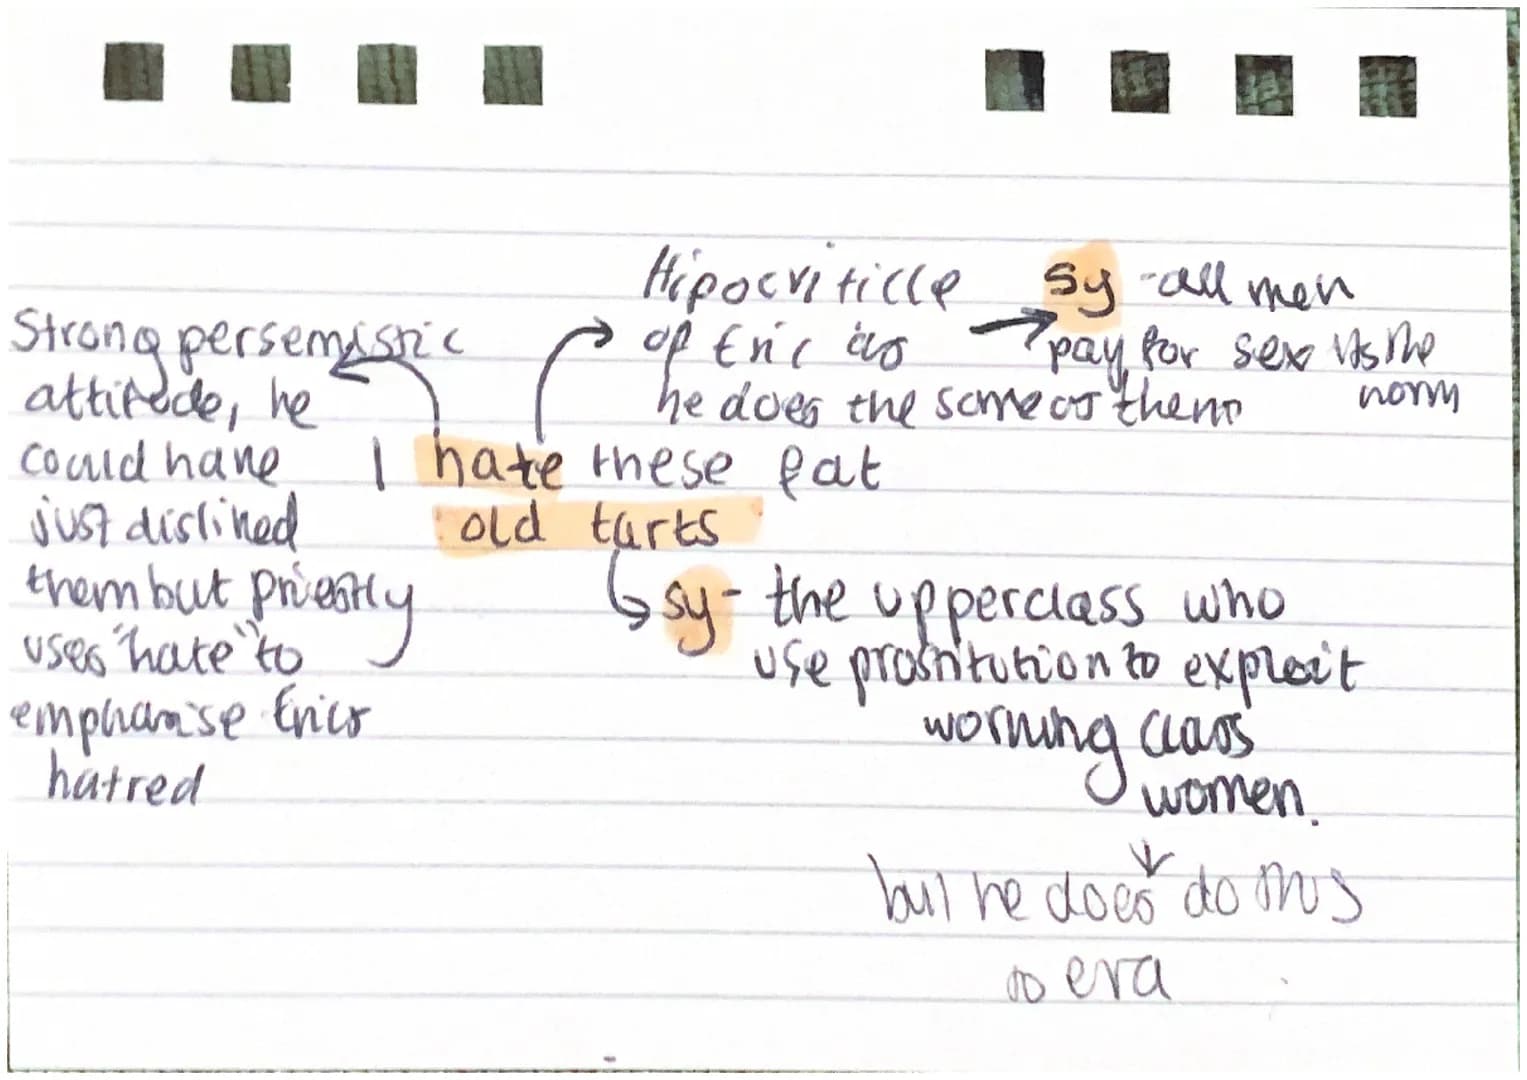 Hipocriticle
of Eric as
he does the same as them
sy - all men
pay for sex its the
norm
Strong persemistic
attitude, he
could have
just disliked
them but priestly
uses "hate" to
emphasise Erics
hatred
I hate these fat
old tarts
sy - the upperclass who
use prostitution to exploit
working class
women.
but he does do this
to eva